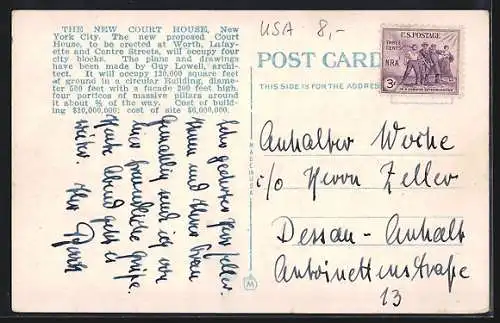 THE NEW COURT HOUSE,
New York City. The new proposed Court
House, to be erected at Worth, Lafay-
ette and Centre Streets, will occupy four
city blocks. The plans and drawings
have been made by Guy Lowell, archi-
tect. It will occupy 120,000 square feet
of ground in a circular Building, diame-
ter 500 feet with a facade 200 feet high,
four porticos of massive pillars around
it about ¾ of the way. Cost of build-
ing $10,000,000; cost of site $6,000,000.
Sehr geehrter Herr Zeller.
Ihnen und Ihrer Frau
Gemahlin send ich von
hier freundliche Grüße.
Heute Abend geht es
weiter. Ihr
USA 8,-
POST CARD
THIS SIDE IS FOR THE ADDRESS
U.S. POSTAGE
THREE CENTS
NRA
3¢
MADE IN U.S.A.
M
Anhalter Woche
c/o Herrn Zeller
Dessau-Anhalt
Antoinettenstraße
13